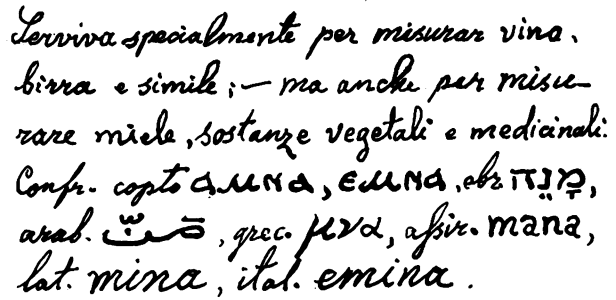 Serviva specialmente per misurar vino,
birra e simile; — ma anche per misu-
rare miele, sostanze vegetali e medicinali.
Confr. copto ⲁⲙⲛⲁ, ⲉⲙⲛⲁ, ebr. מָנֵה,
arab. , grec. μνα, assir. mana,
lat. mina, ital. emina.